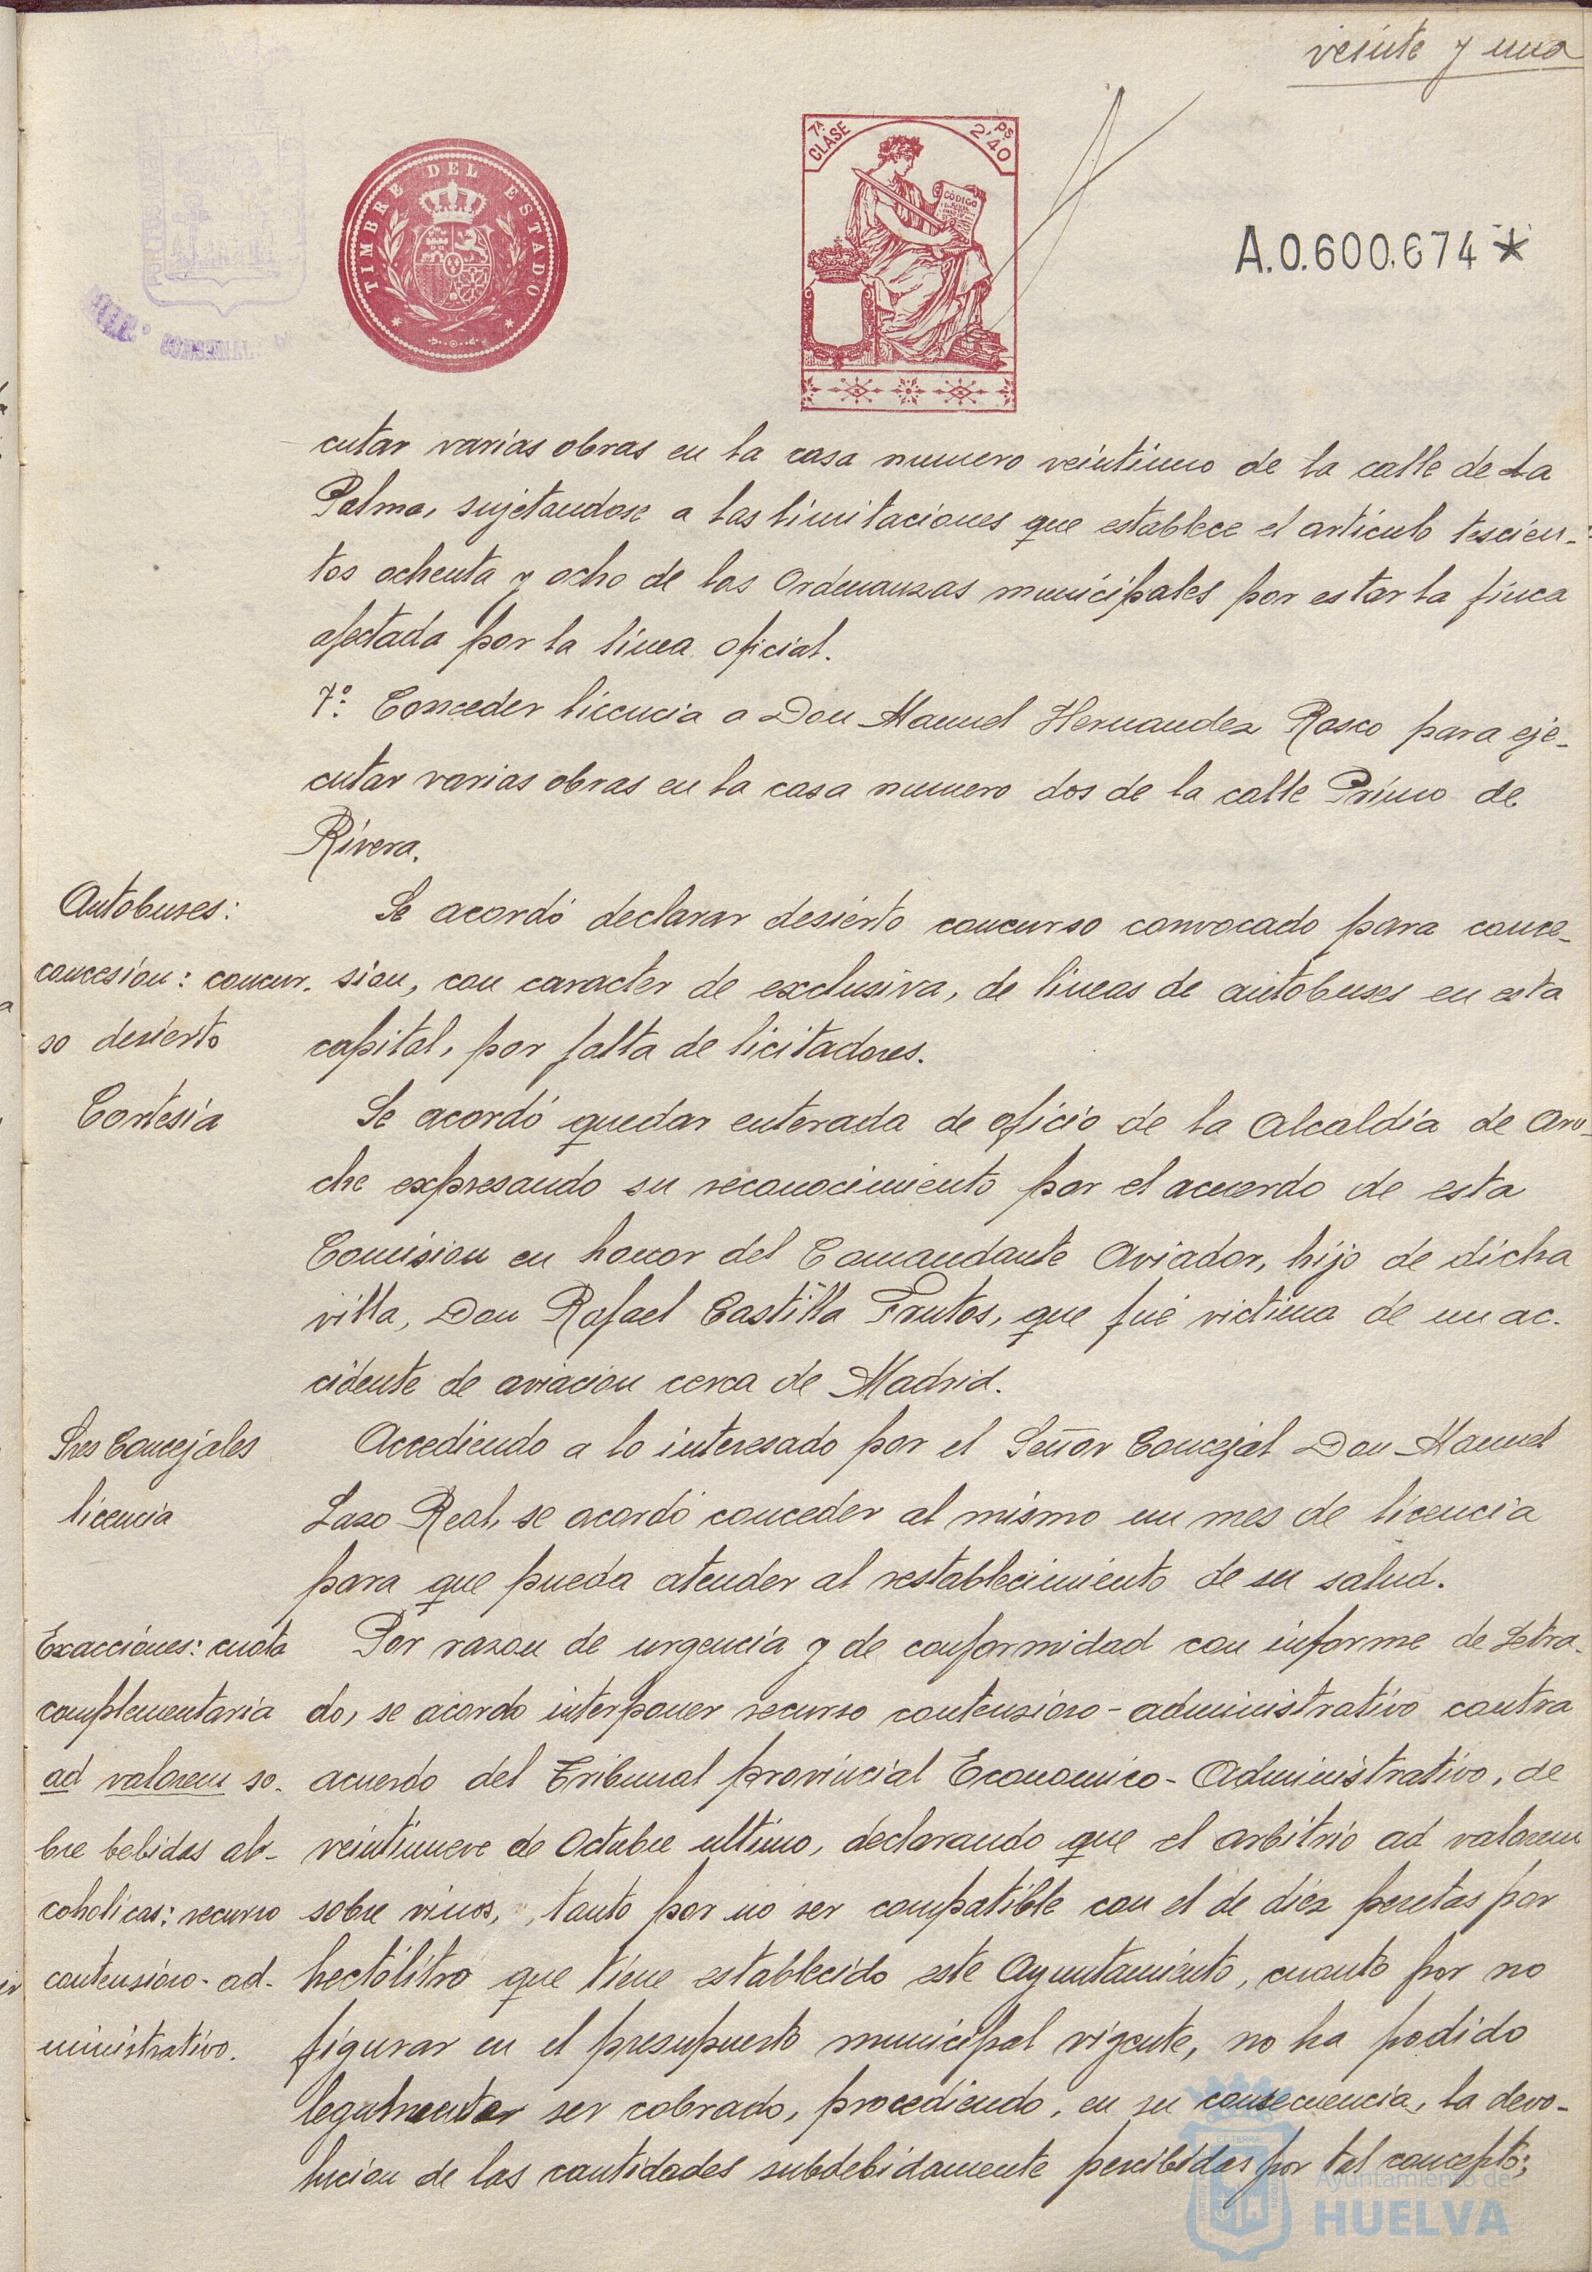 veinte y una
TIMBRE DEL ESTADO
7ª CLASE
2'40 PS
CODIGO
A.0.600.674*
cutar varias obras en la casa numero veintiuno de la calle de La
Palma, sujetandose a las limitaciones que establece el artículo tescien-
tos ochenta y ocho de las Ordenanzas municipales por estar la finca
afectada por la línea oficial.
7º: Conceder licencia a Don Manuel Hernandez Rosco para eje-
cutar varias obras en la casa numero dos de la calle Primo de
Rivera.
Autobuses:
concesion: concur-
so desierto
Se acordó declarar desierto concurso convocado para conce-
sion, con caracter de exclusiva, de lineas de autobuses en esta
capital, por falta de licitadores.
Cortesía
Se acordó quedar enterada de oficio de la Alcaldía de Aro-
che expresando su reconocimiento por el acuerdo de esta
Comision en honor del Comandante Aviador, hijo de dicha
villa, Don Rafael Castilla Frutos, que fué victima de un ac-
cidente de aviacion cerca de Madrid.
Sres Concejales
licencia
Accediendo a lo interesado por el Señor Concejal Don Manuel
Lazo Real, se acordó conceder al mismo un mes de licencia
para que pueda atender al restablecimiento de su salud.
Exacciones: cuota
complementaria
ad valorem so-
bre bebidas al-
coholicas: recurso
contensioso-ad-
ministrativo.
Por razon de urgencia y de conformidad con informe de Letra-
do, se acordo interponer recurso contensioso-administrativo contra
acuerdo del Tribunal provincial Economico-Administrativo, de
veintinueve de Octubre ultimo, declarando que el arbitrio ad valorem
sobre vinos, tanto por no ser compatible con el de diez pesetas por
hectólitro que tiene establecido este Ayuntamiento, cuanto por no
figurar en el presupuesto municipal vigente, no ha podido
legalmente ser cobrado, procediendo, en su consecuencia, la devo-
lucion de las cantidades subdebidamente percibidas por tal concepto;
Ayuntamiento de
HUELVA